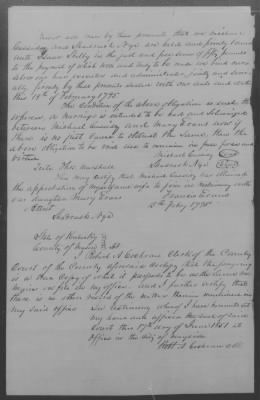 Know all men by these presents that we Michael
Cassiday and Shadrack Nye are held and firmly bound
unto Isaac Shelby in the just and full sum of fifty pounds
to the payment of which well and truly to be made we bind our
selves our heirs executors and administrators jointly and seve
rally firmly by these presents sealed with our seals and dated
this 12th of February 1795
The Condition of the above obligation is such that
whereas a marriage is intended to be had and solemnized
between Michael Cassiday and Mary Evans now if
there is no just cause to obstruct the same then the
above obligation to be void else to remain in full force and
virtue
Michael Cassiday
Teste Thos Marshall
Shadrack Nye
You may certify that Michael Cassiday has obtained
the approbation of myself and wife to join in matrimony with
our daughter Mary Evans
Francis Evans
Attest
12th Feby 1795
Shadrack Nye
State of Kentucky
County of Mason
I Robert A Cochran Clerk of the County
Court of the County aforesaid certify that the foregoing
is a true Copy of what it purports to be as the same now
remains on file in my office. And I further certify that
there is no other record of the matter therein mentioned in
my said office
In testimony whereof I have hereunto set
my hand and affixed the seal of said
Court this 17th day of June 1851 at
office in the City of Maysville
Robt A Cochran Clk